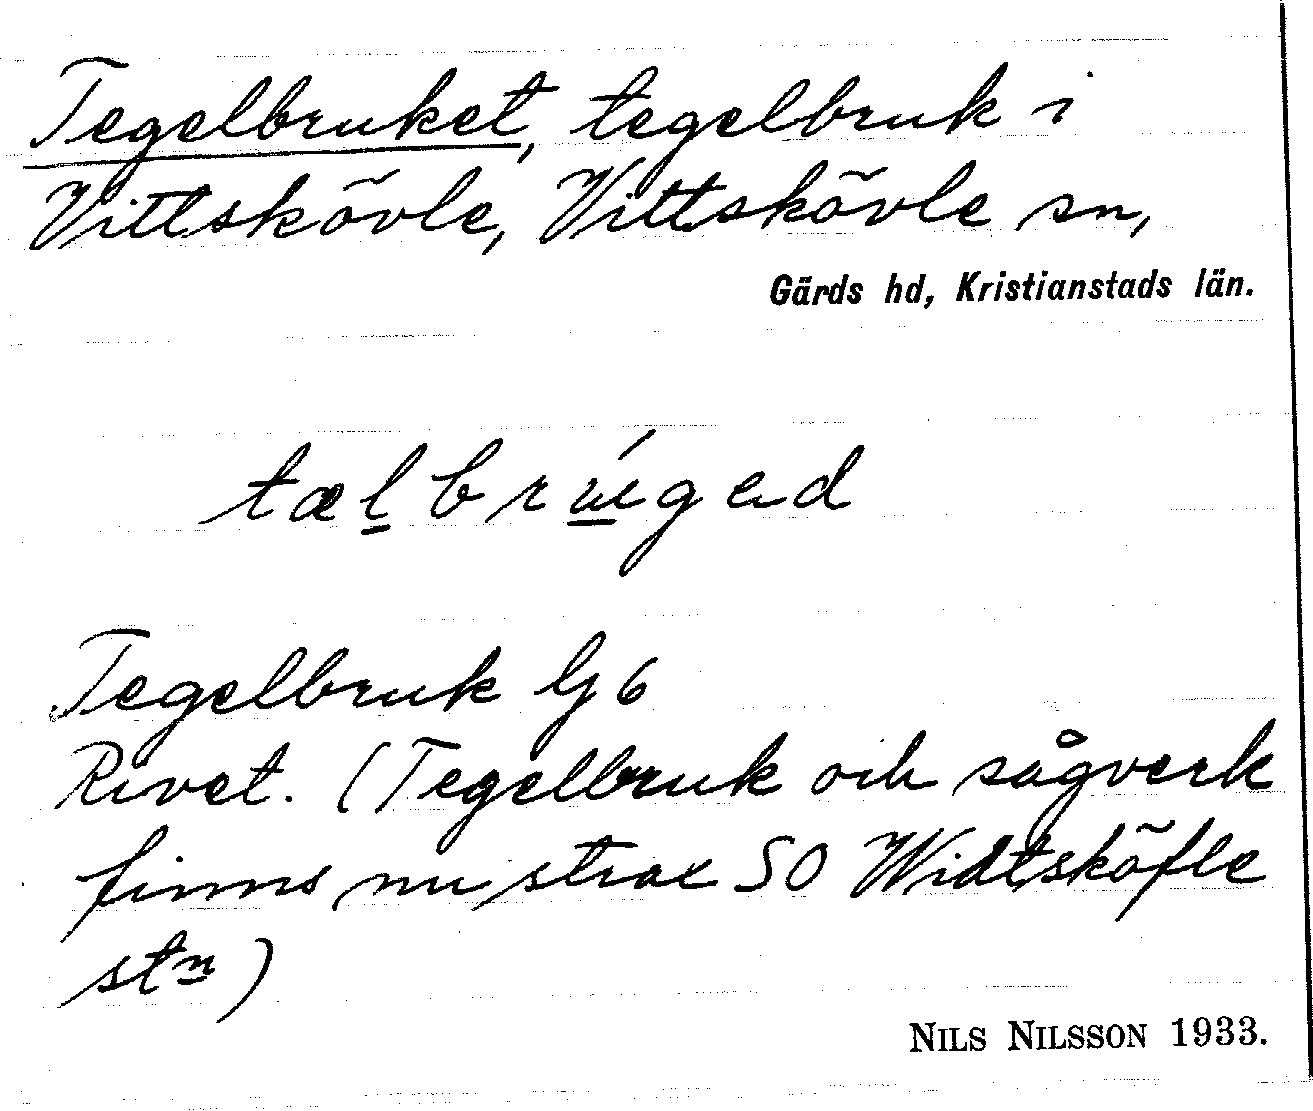 Tegelbruket, tegelbruk i
Vittskövle, Vittskövle sn,
Gärds hd, Kristianstads län.
tælbrúgad
Tegelbruk G 6
Rivet. (Tegelbruk och sågverk
finns nu strax SO Widtsköfle
stn)
NILS NILSSON 1933.